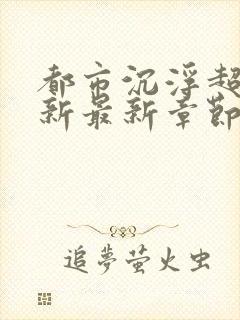 都市沉浮超
新最新章節
追夢萤火虫